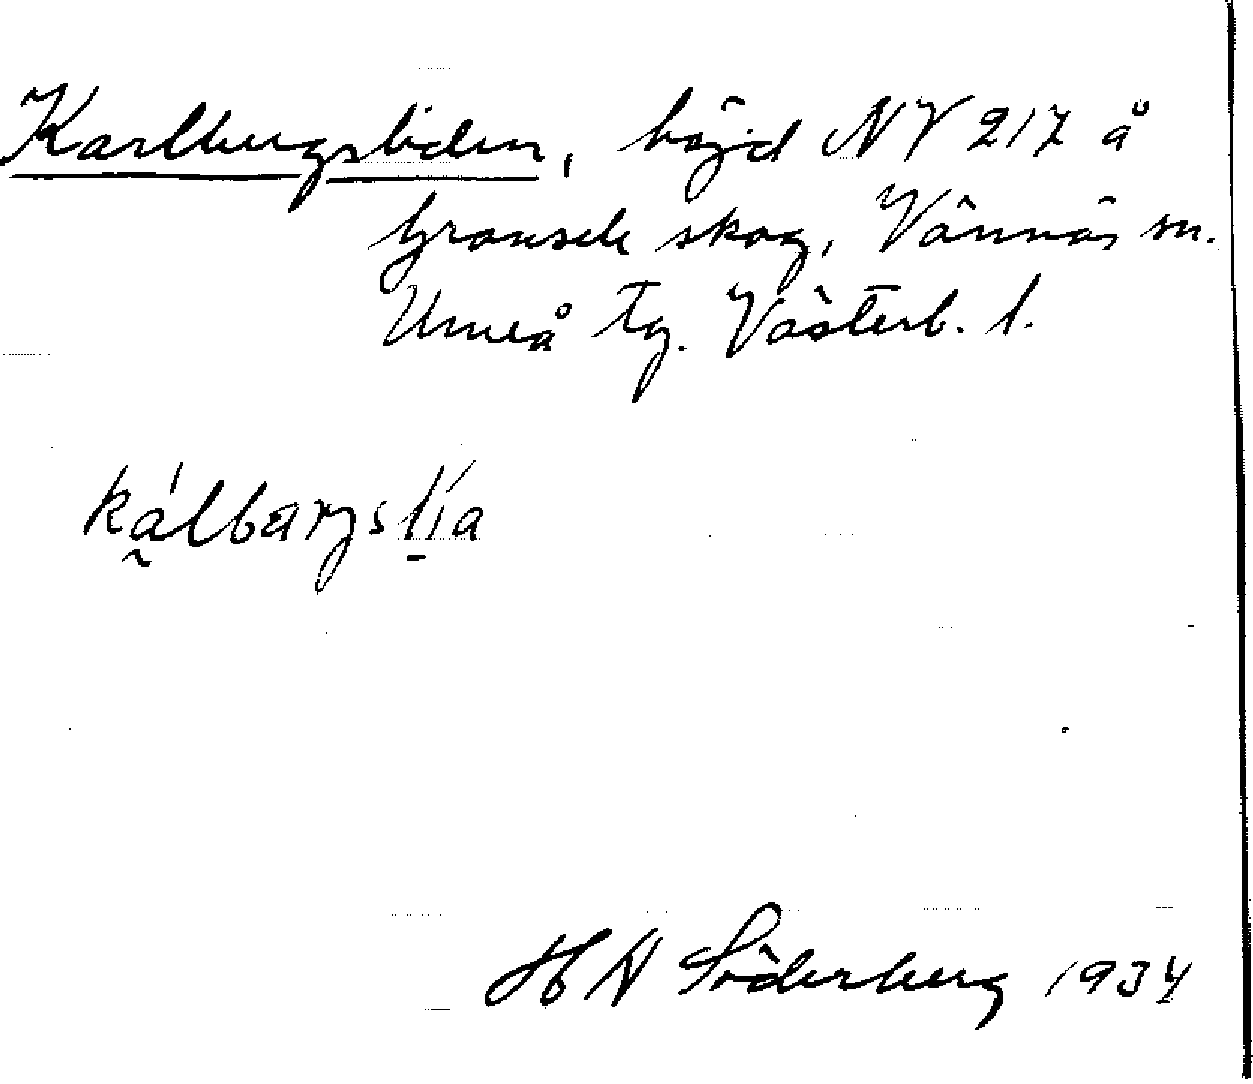 Karlbergsliden, höjd NV 217 å
Gransele skog, Vännäs sn.
Umeå tg. Västerb. l.
kálbærgslía
H A Söderberg 1934